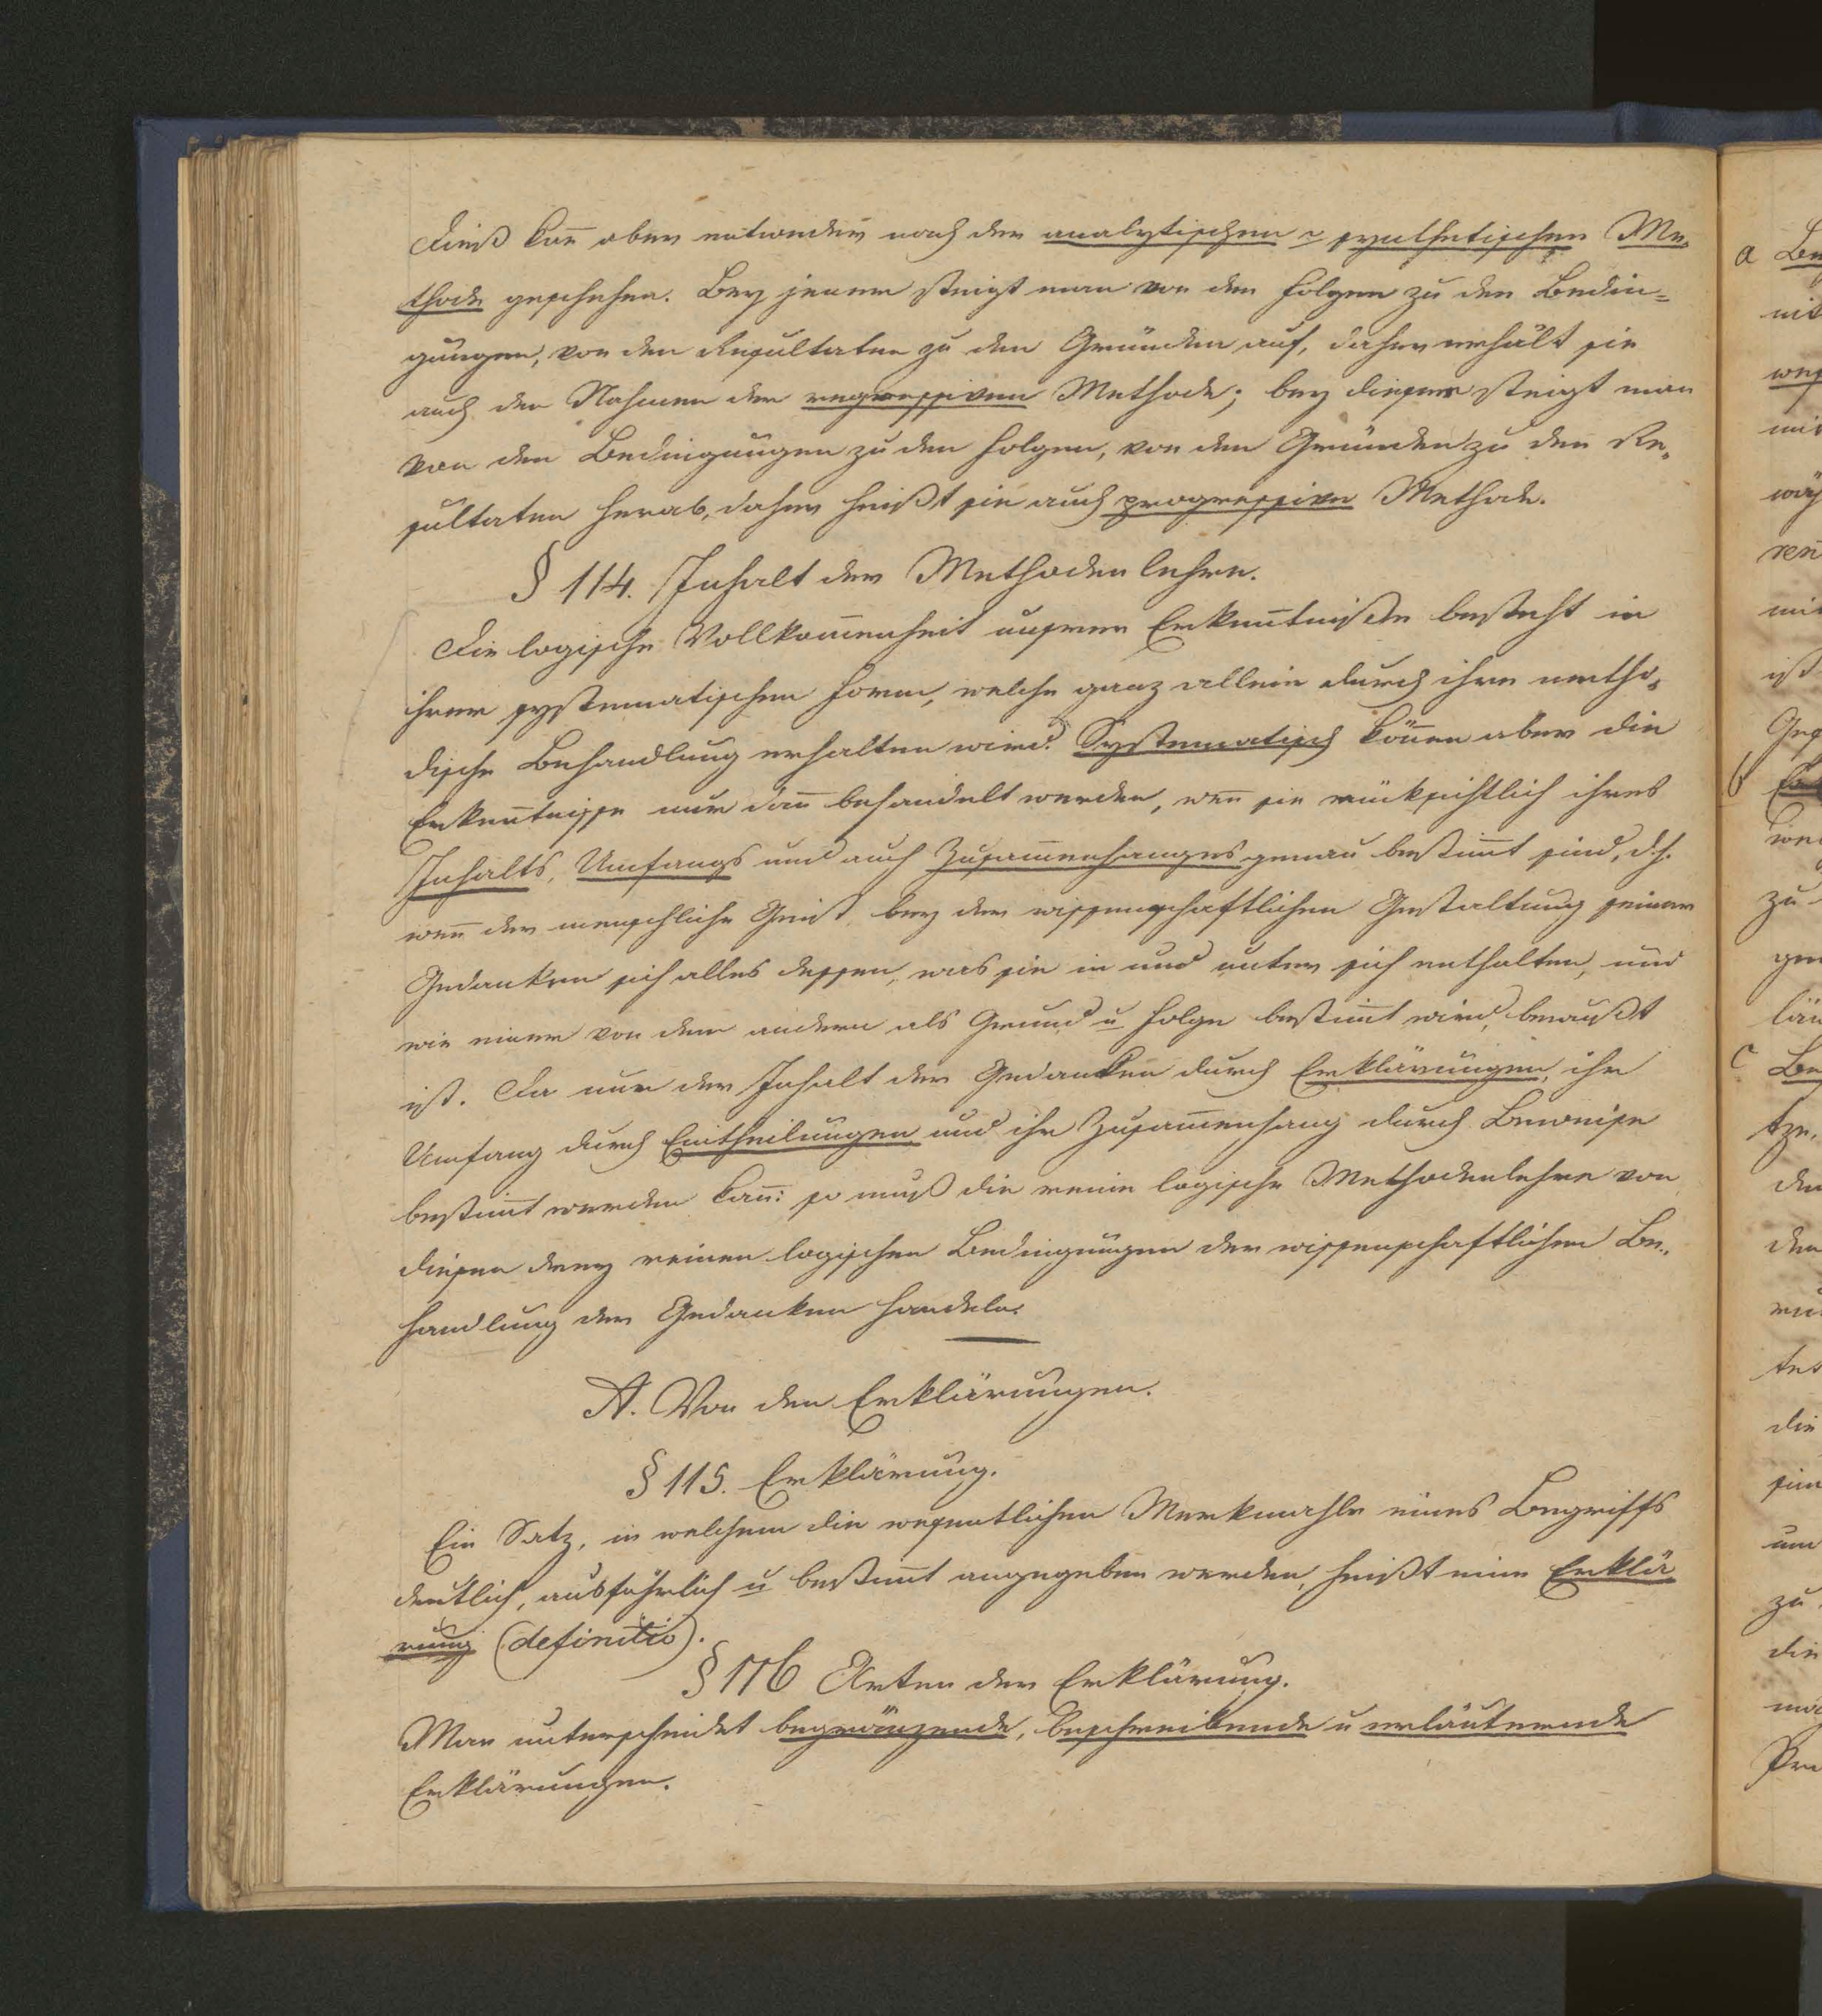 Dieß kan̄ aber entweder nach der analytischen u synthetischen Me-
thode geschehen. Bey jener steigt man von den Folgen zu den Bedin-
gungen, von den Resultaten zu den Gründen auf, daher erhält sie
auch den Nahmen der regressiven Methode; bey dieser steigt man
von den Bedingungen zu den Folgen, von den Gründen zu den Re-
sultaten herab, daher heißt sie auch progressive Methode.
§ 114. Inhalt der Methodenlehre.
Die logische Vollkom̄enheit unserer Erken̄tniße besteht in
ihrer systematischen Form, welche ganz allein durch ihre metho-
dische Behandlung erhalten wird. Systematisch kön̄en aber die
Erken̄tnisse nur dan̄ behandelt werden, wen̄ sie rücksichtlich ihres
Inhalts, Umfangs und auch Zusam̄enhanges genau bestim̄t sind, d.h.
wen̄ der menschliche Geist bey der wissenschaftlichen Gestaltung seiner
Gedanken sich alles dessen, was sie in und unter sich enthalten, und
wie einer von dem andern als Grund u Folge bestim̄t wird, bewußt
ist. Da nur der Inhalt der Gedanken durch Erklärungen, ihr
Umfang durch Eintheilungen und ihr Zusam̄enhang durch Beweise
bestim̄t werden kan̄: so muß die reine logische Methodenlehre von
diesen drey reinen logischen Bedingungen der wissenschaftlichen Be-
handlung der Gedanken handeln.
A. Von den Erklärungen.
§ 115. Erklärung.
Ein Satz, in welchem die wesentlichen Merkmahle eines Begriffs
deutlich, ausführlich u bestim̄t angegeben werden, heißt eine Erklä-
rung (definitio).
§ 116 Arten der Erklärung.
Man unterscheidet begränzende, beschreibende u erläuternde
Erklärungen.